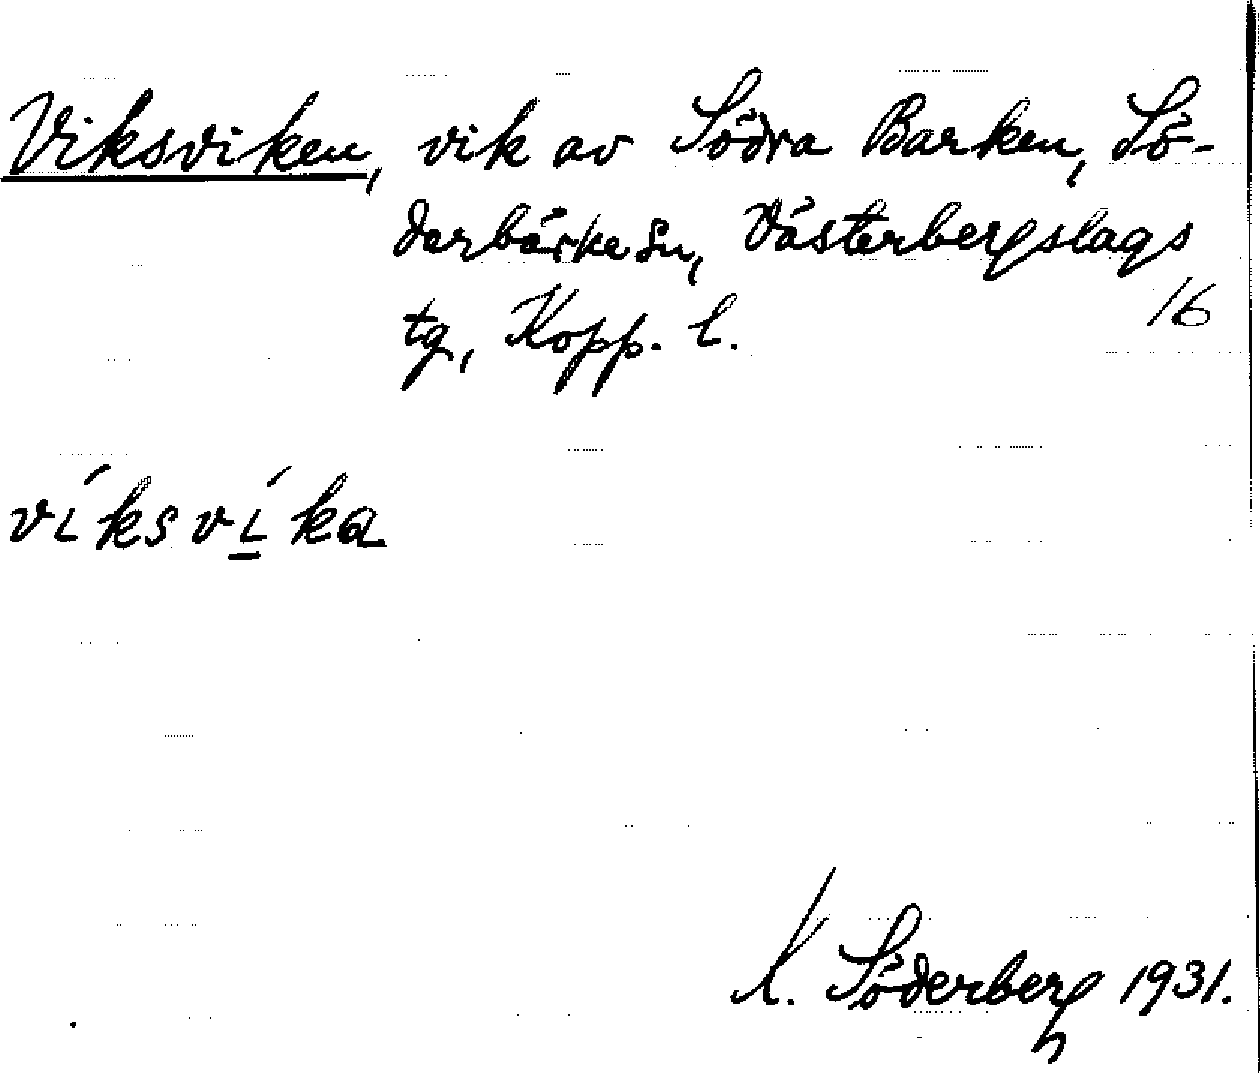 Viksviken, vik av Södra Barken, Sö-
derbärke sn, Västerbergslags
tg, Kopp. l. 16
víksví̱ka
K. Söderberg 1931.